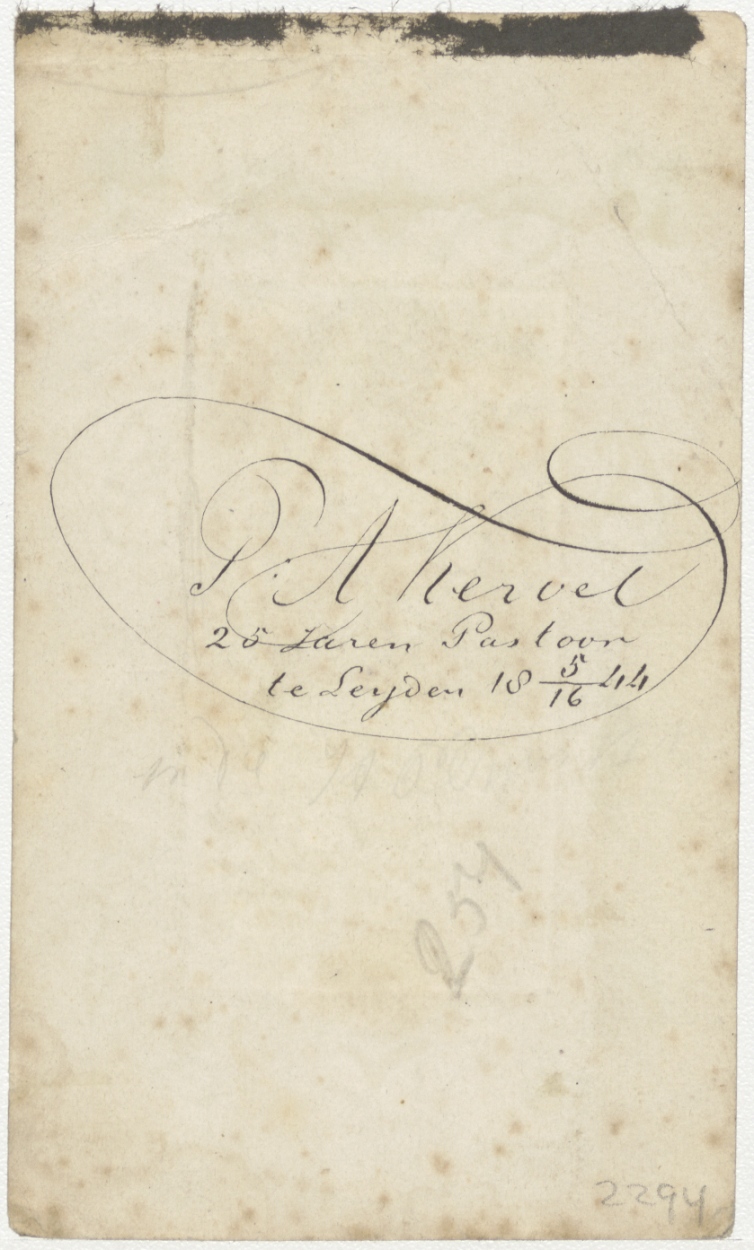 P. A Kervel
25 Jaren Pastoor
te Leyden 18 5/16 44
254
2294